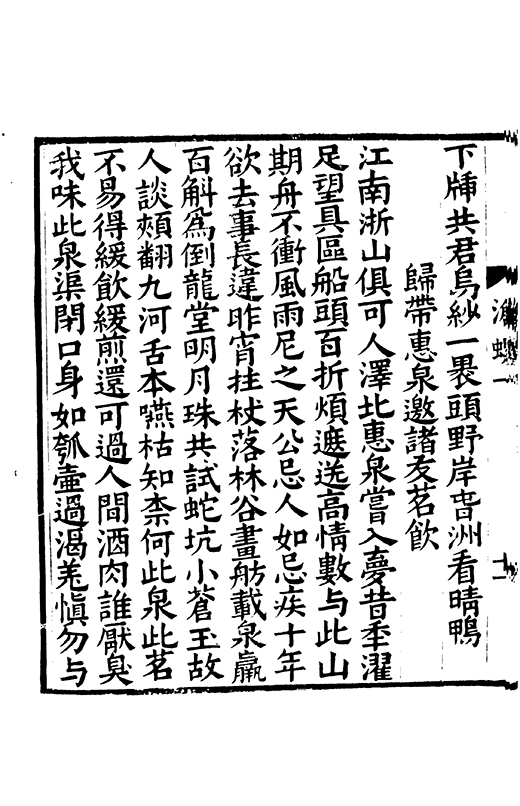 下牀共君烏紗一褁頭野岸杏洲看晴鴨
歸帶惠泉邀諸友茗飲
江南浙山俱可人澤北惠泉嘗入夢昔年濯
足望具區船頭百折煩遮送高情數与此山
期舟不衝風雨尼之天公忌人如忌疾十年
欲去事長違昨宵拄杖落林谷畫舫載泉贏
百斛爲倒龍堂明月珠共試蛇坑小蒼玉故
人談頰翻九河舌本嚥枯知柰何此泉此茗
不易得緩飲緩煎還可過人間酒肉誰厭臭
我味此泉渠閉口身如瓠壷過渴羌愼勿与